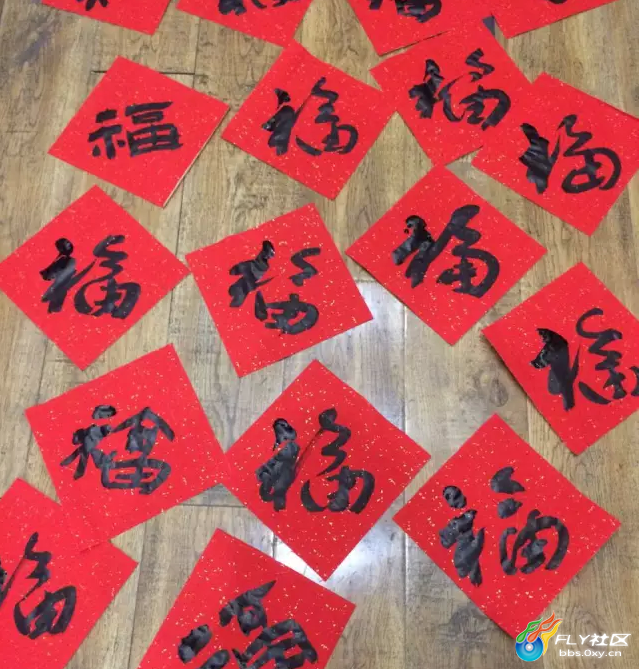 福
福
福
福
福
福
福
福
福
福
福
福
福
FLY社区
bbs.0xy.cn